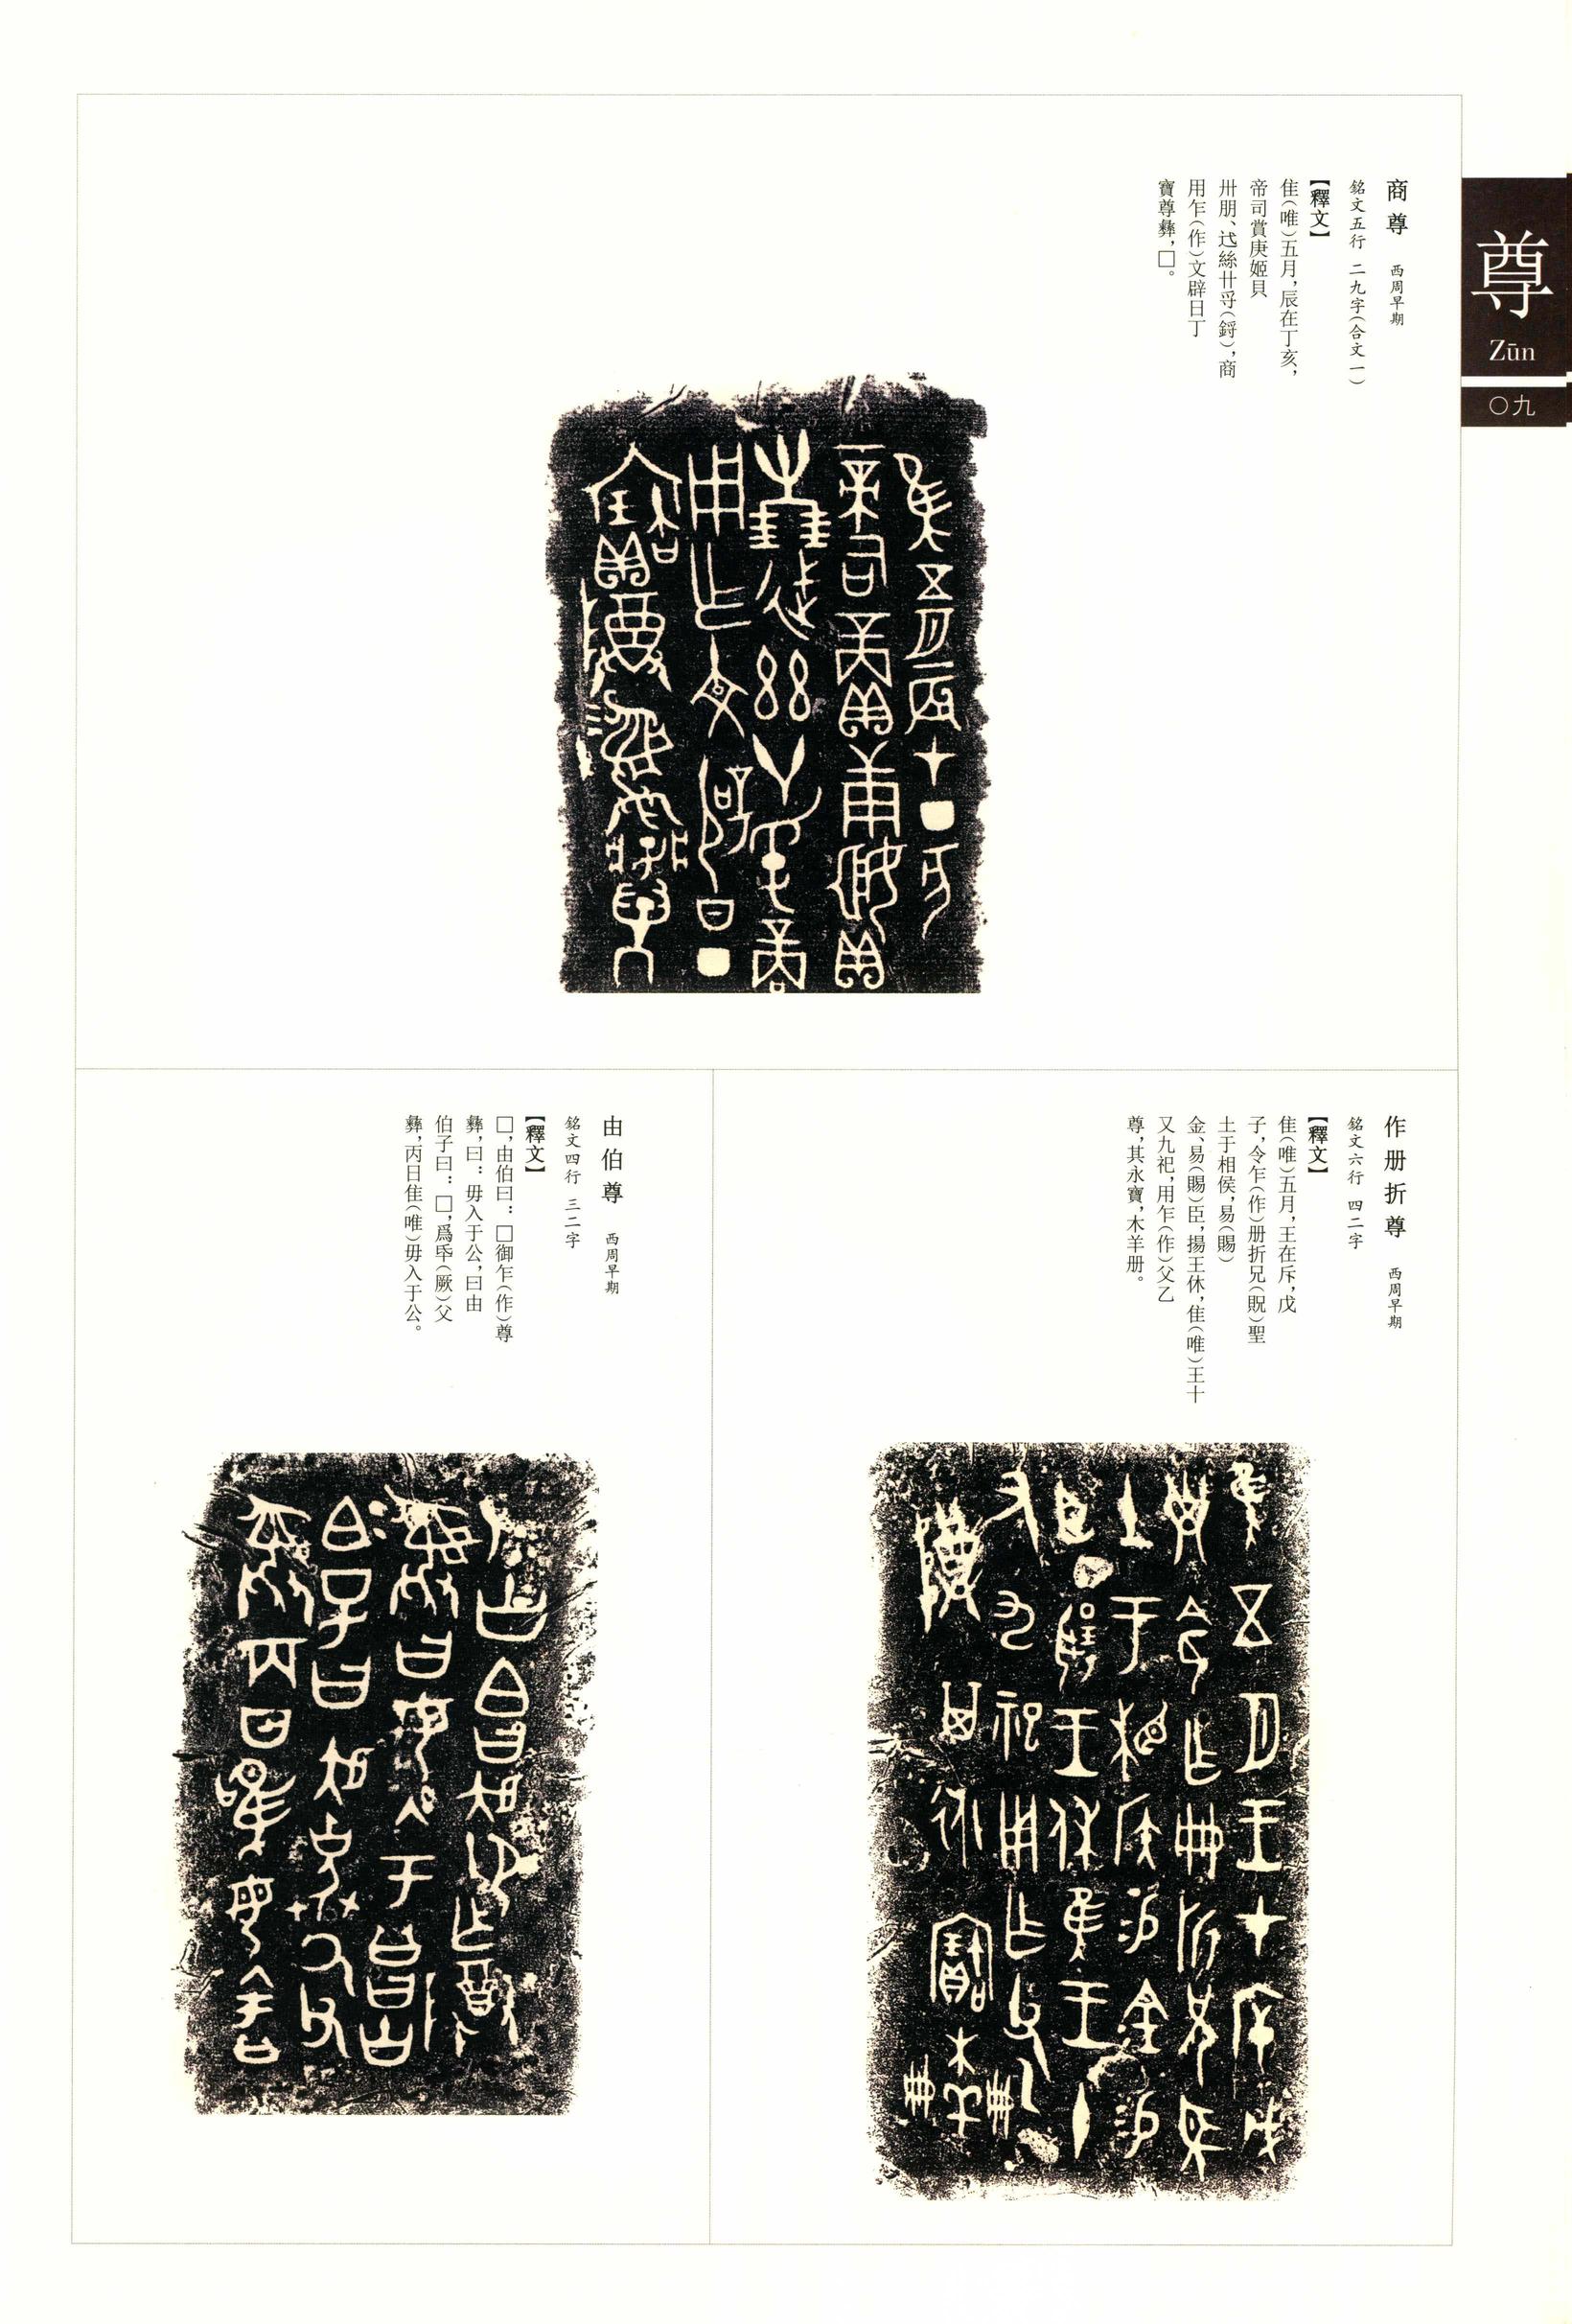 尊
Zūn
〇九
商尊 西周早期
銘文五行 二九字(合文一)
【釋文】
隹(唯)五月,辰在丁亥,
帝司賞庚姬貝
卅朋、迖絲廿寽(鋝),商
用乍(作)文辟日丁
寶尊彝,□。
作册折尊 西周早期
銘文六行 四二字
【釋文】
隹(唯)五月,王在斥,戊
子,令乍(作)册折兄(貺)聖
土于相侯,易(賜)
金、易(賜)臣,揚王休,隹(唯)王十
又九祀,用乍(作)父乙
尊,其永寶,木羊册。
由伯尊 西周早期
銘文四行 三二字
【釋文】
□,由伯曰:□御乍(作)尊
彝,曰:毋入于公,曰由
伯子曰:□,爲氒(厥)父
彝,丙日隹(唯)毋入于公。